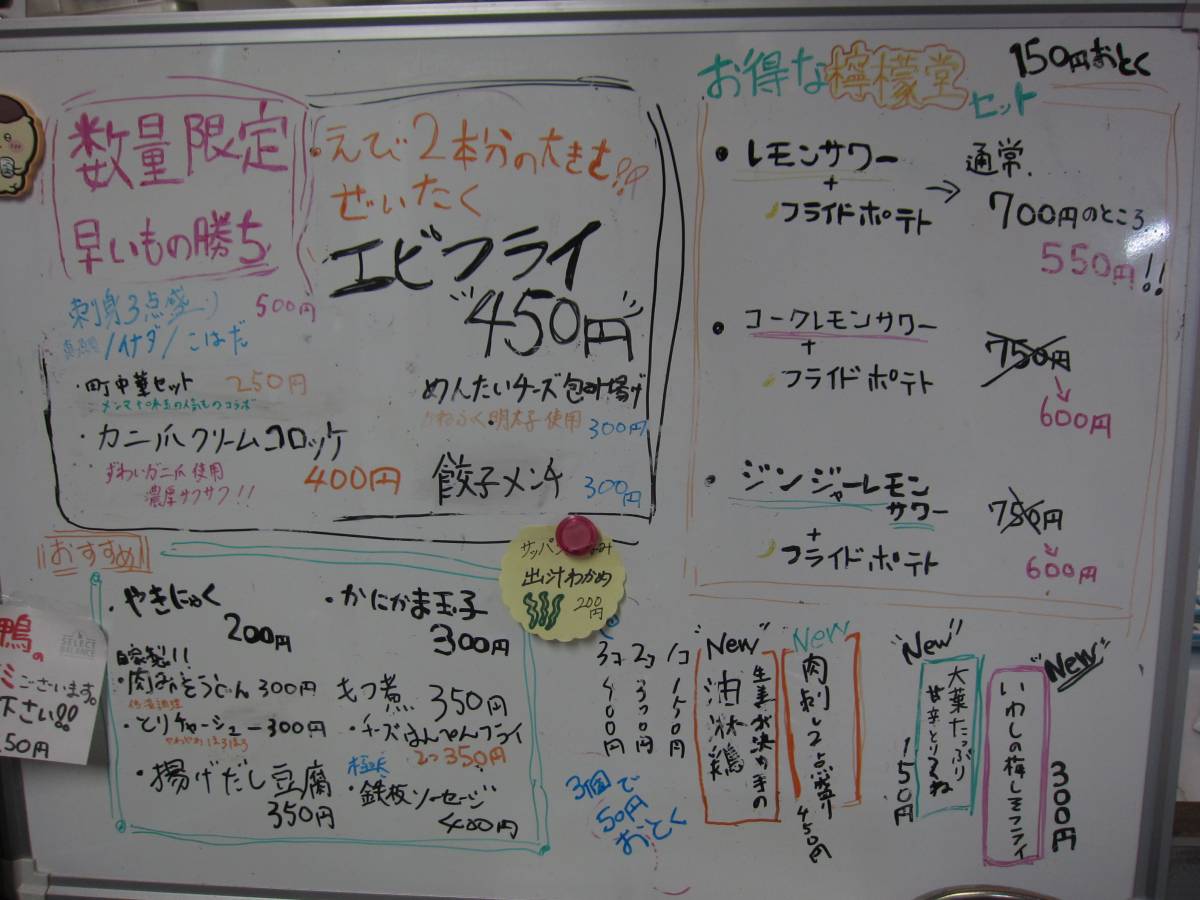 数量限定
早いもの勝ち
えび2本分の大きさ!!
ぜいたく
エビフライ
"450円"
刺身3点盛り 500円
/イサダ/こはだ
・町中華セット 250円
・カニ爪クリームコロッケ
ずわいガニ爪使用
濃厚サクサク!!
400円
めんたいチーズ包み揚げ
かねふく明太子使用 300円
餃子メンチ 300円
お得な檸檬堂
セット
150円おとく
・レモンサワー
+
フライドポテト
→
通常
700円のところ
550円!!
・コークレモンサワー
+
フライドポテト
750円
600円
・ジンジャーレモン
サワー
+
フライドポテト
750円
600円
おすすめ
・やきにゃく
200円
・かにかま玉子
300円
自家製!!
・肉みそうどん 300円
低温調理
・とりチャーシュー 300円
やわやわほろほろ
・揚げだし豆腐
350円
もつ煮 350円
・チーズはんぺんフライ
2つ350円
・鉄板ソーセージ
400円
出汁わかめ
200円
鴨の
ございます。
下さい!!
SELECT
BALANCE
1コ 150円
2コ 300円
3コ 400円
3個で
50円
おとく
"New"
生姜が決め手の
油淋鶏
New
肉刺し2点盛り
450円
"New"
大葉たっぷり
甘辛とりつくね
150円
"New"
いわしの梅しそフライ
300円